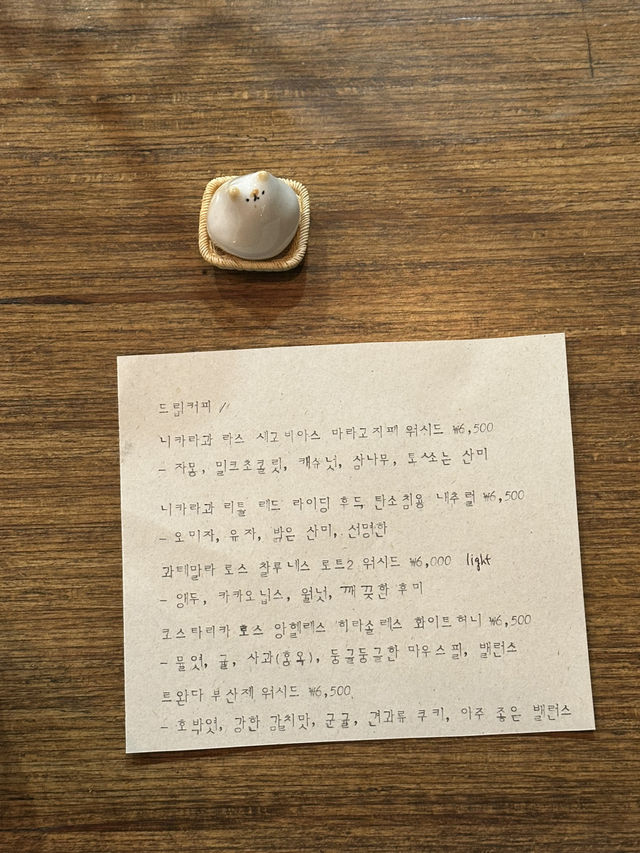 드립커피 //
니카라과 라스 세고비아스 마라고지페 워시드 ₩6,500
- 자몽, 밀크초콜릿, 캐슈넛, 삼나무, 톡쏘는 산미
니카라과 리틀 레드 라이딩 후드 탄소침용 내추럴 ₩6,500
- 오미자, 유자, 밝은 산미, 선명한
과테말라 로스 찰루네스 로트2 워시드 ₩6,000 light
- 앵두, 카카오닙스, 월넛, 깨끗한 후미
코스타리카 로스 앙헬레스 히라솔레스 화이트허니 ₩6,500
- 물엿, 귤, 사과(홍옥), 둥글둥글한 마우스필, 밸런스
르완다 부산제 워시드 ₩6,500
- 호박엿, 강한 감칠맛, 군귤, 견과류 쿠키, 아주 좋은 밸런스